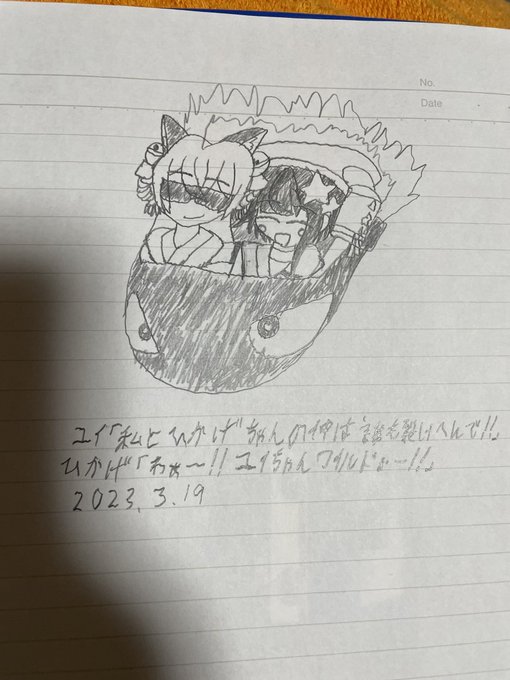 No.
Date
ユイ「私とひかげちゃんの仲は誰も裂けへんで!!」
ひかげ「わぁ〜!!ユイちゃんワイルドぉー!!」
2023.3.19